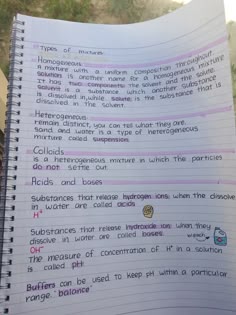 Types of mixtures
Homogeneous
a mixture with a uniform composition throughout.
Solution is another name for a homogeneous mixture
it has two components: The solvent and the solute.
Solvent is a substance which another substance
is dissolved in, while solute is the substance that is
dissolved in the solvent.
Heterogeneous
remain distinct, you can tell what they are.
Sand and water is a type of heterogeneous
mixture called suspension
Colloids
is a heterogeneous mixture in which the particles
do not settle out
Acids and bases
Substances that release hydrogen ions when the dissolve
in water are called acids
H⁺
Substances that release hydroxide ions when they
dissolve in water are called bases.
OH⁻
The measure of concentration of H⁺ in a solution
is called pH.
Buffers can be used to keep pH within a particular
range. balance